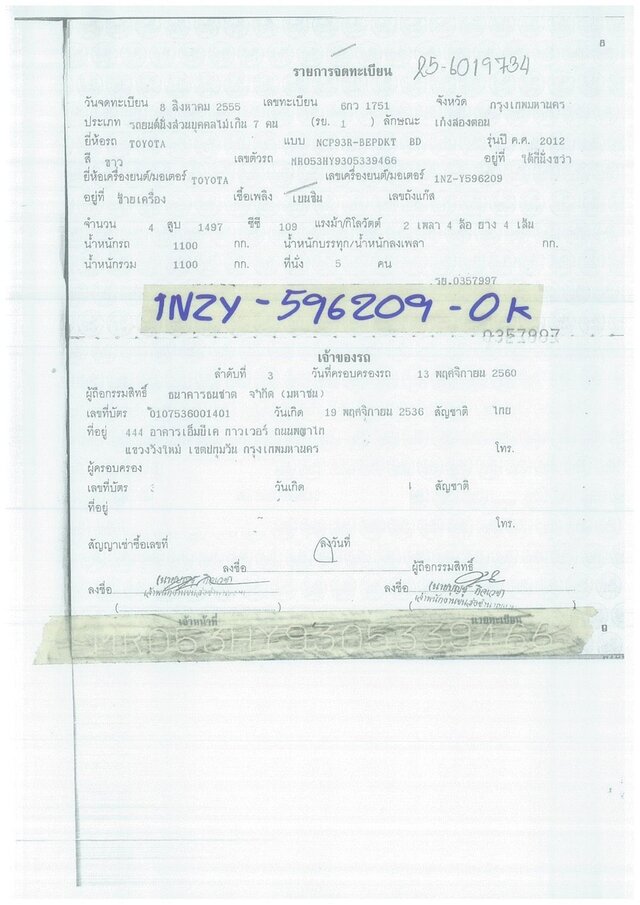 8
รายการจดทะเบียน 25-6019734
วันจดทะเบียน 8 สิงหาคม 2555 เลขทะเบียน 6กว 1751 จังหวัด กรุงเทพมหานคร
ประเภท รถยนต์นั่งส่วนบุคคลไม่เกิน 7 คน (รย. 1 ) ลักษณะ เก๋งสองตอน
ยี่ห้อรถ TOYOTA แบบ NCP93R-BEPDKT BD รุ่นปี ค.ศ. 2012
สี ขาว เลขตัวรถ MR053HY9305339466 อยู่ที่ ใต้ที่นั่งขวา
ยี่ห้อเครื่องยนต์/มอเตอร์ TOYOTA เลขเครื่องยนต์/มอเตอร์ 1NZ-Y596209
อยู่ที่ ซ้ายเครื่อง เชื้อเพลิง เบนซิน เลขถังแก๊ส
จำนวน 4 สูบ 1497 ซีซี 109 แรงม้า/กิโลวัตต์ 2 เพลา 4 ล้อ ยาง 4 เส้น
น้ำหนักรถ 1100 กก. น้ำหนักบรรทุก/น้ำหนักลงเพลา กก.
น้ำหนักรวม 1100 กก. ที่นั่ง 5 คน
รย.0357997
1NZY-596209-OK
0357997
เจ้าของรถ
ลำดับที่ 3 วันที่ครอบครองรถ 13 พฤศจิกายน 2560
ผู้ถือกรรมสิทธิ์ ธนาคารธนชาต จำกัด (มหาชน)
เลขที่บัตร 0107536001401 วันเกิด 19 พฤศจิกายน 2536 สัญชาติ ไทย
ที่อยู่ 444 อาคารเอ็มบีเค ทาวเวอร์ ถนนพญาไท
แขวงวังใหม่ เขตปทุมวัน กรุงเทพมหานคร โทร.
ผู้ครอบครอง
เลขที่บัตร วันเกิด สัญชาติ
ที่อยู่
โทร.
สัญญาเช่าซื้อเลขที่ ลงวันที่
ลงชื่อ ผู้ถือกรรมสิทธิ์
ลงชื่อ ลงชื่อ
เจ้าหน้าที่ นายทะเบียน
MR053HY9305339466